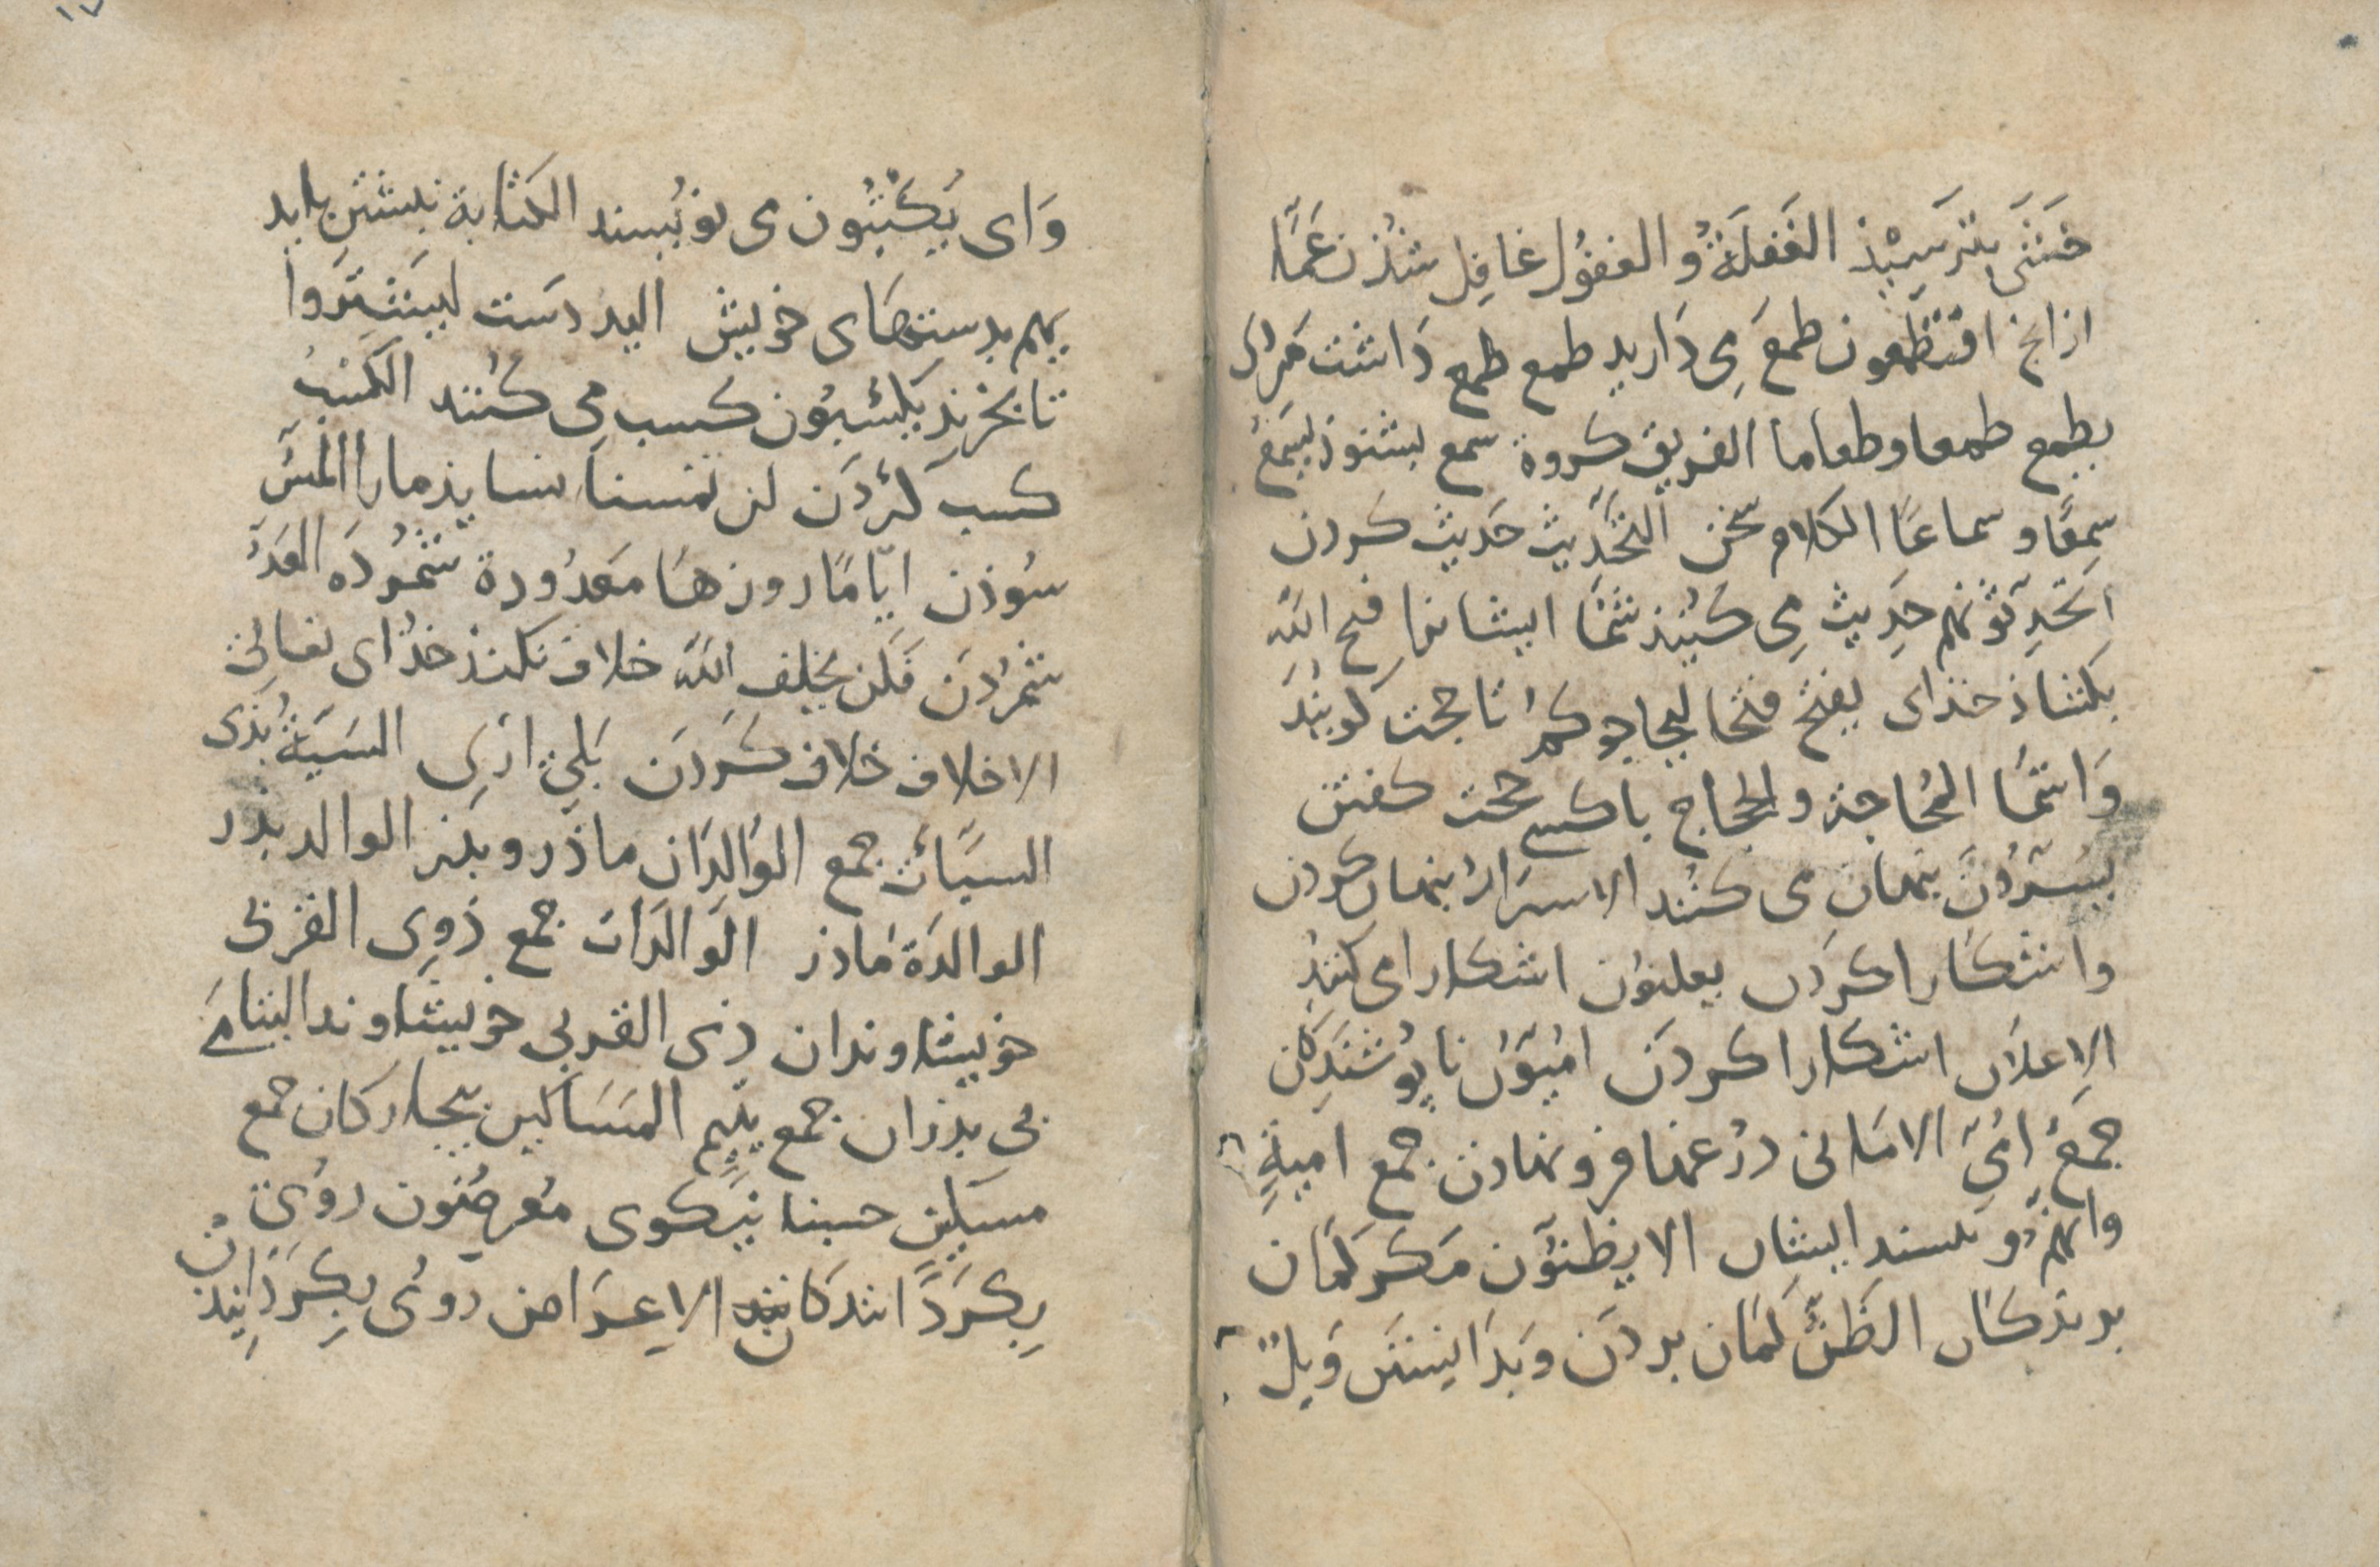 خشی بترسیذ الغَفلَةُ والغفُول غافِل شذن عَمَّا
از انج افتطمعون طمعَ می دَارید طمع طمع دَاشت
یطمع طمعا وطعاما الفریق کروة سمع بشنوذ یسمَعُ
سمِعًا وسماعًا الکلام سخن التحدیث حَدیث کردن
اتحدِثونهم حدِیث می کنیذ شمَا ایشانرا فتح اللهُ
بکشاذ خذای یفتح فتحا لیحاجوکمُ تا حجت کویند
وَاشما المُحاجة والحِجاج باکسی حجت کفتن
یسُرّونَ بنهان می کنند الاسرَارُ بنهان کردن
واشکارا کردن یعلنون اشکارا می کنند
الاِعلان اشکارا کردن امیّون نانویشندکان
جمَعُ اُمّی الامانی درُغها فرونهادن جمع امنیةٍ
وانهم ونیستند ایشان الا یظنّون مکر کمان
برندکان الظنُّ کمان بردن وبدَانستن وَیلٌ
وَای یکتُبُون می نویُسند الکتابة نبشتن باید
یهم بدستهَای خویش الید دَست لیَشترَوا
تا بخرند یکسبُون کسب می کنند الکسْب
کسب کردَن لن تمسنا نسایذ مارا المسّ
سُوذن ایّامًا روزهَا معدُودة شمُردَه العَدُّ
شمُردَن فَلَن یخلِف اللهُ خلاف نکنذ خذای تعالی
الاخلاف خلاف کردَن بَلی اری السَیّئةُ بَذی
السیّأت جمع الوَالدَان ماذر وبذر الوالد بذر
الوالدَة مَاذر الوَالدَات جمع ذوِی القربی
خویشاوندان ذِی القربی خویشَاوند الیتامَی
بی بذران جمع یتیم المَسَاکین بیجارکان جمع
مسکین حسنا نیکوی مُعرضُون رویُ
بکرَدَانندکان الاِعرَاض روُی بکردَانیذن